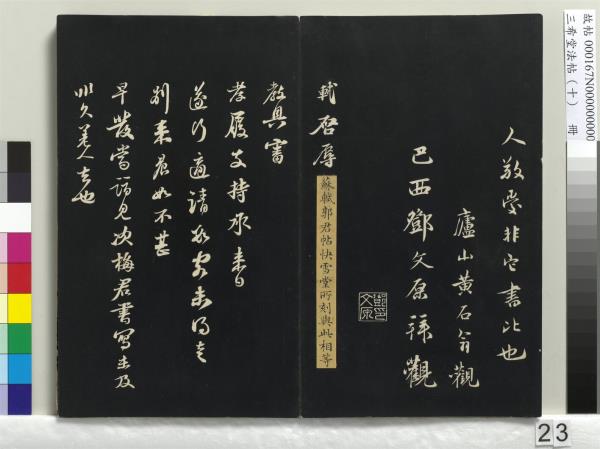 故帖 000167N000000000
三希堂法帖(十) 冊
人敬愛非它書比也
廬山黃石翁觀
巴西鄧文原拜觀
蘇軾郭君帖快雪堂所刻與此相等
軾啓辱
教具審
孝履支持承來日
遂行適請數客未得走
別來晨如不甚
早發當詣見次梅君書寫未及
非久差人去也
23